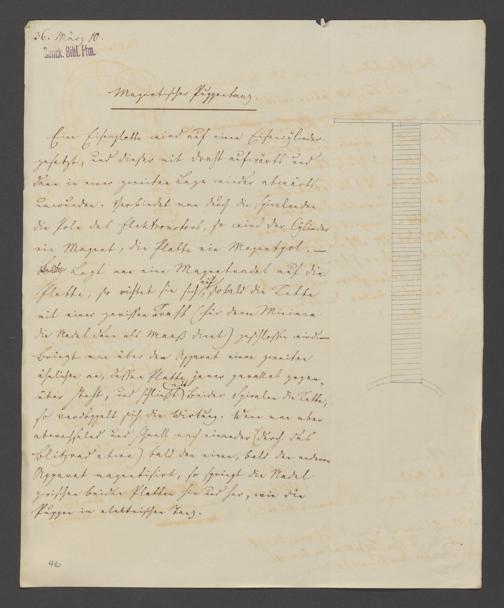 36. März 10.
Senck. Bibl. Ffm.
Magnetischer Puppentanz.
Eine Eisenplatte wird auf einen Eisencylinder
gesetzt, und dieser mit Draht aufwärts und
dann in einer zweiten Lage wieder abwärts
umwunden. Verbindet man durch die Spiralenden
die Pole des Elektromotors, so wird der Cylinder
ein Magnet, die Platte ein Magnetpol. —
Legt man eine Magnetnadel auf die
Platte, so richtet sie sich auf, sobald die Kette
mit einer gewissen Kraft (für deren Minimum
die Nadel dann als Maaß dient) geschlossen wird. —
Bringt man über dem Apparat einen zweiten
ähnlichen an, dessen Platte jener parallel gegen
über steht, und schließt beider Spiralen die Kette,
so verdoppelt sich die Wirkung. Wenn man aber
abwechselnd und schnell nach einander (durch das
Blitzrad etwa) bald den einen, bald den anderen
Apparat magnetisirt, so springt die Nadel
zwischen beiden Platten hin und her, wie die
Puppen im elektrischen Tanz.
46